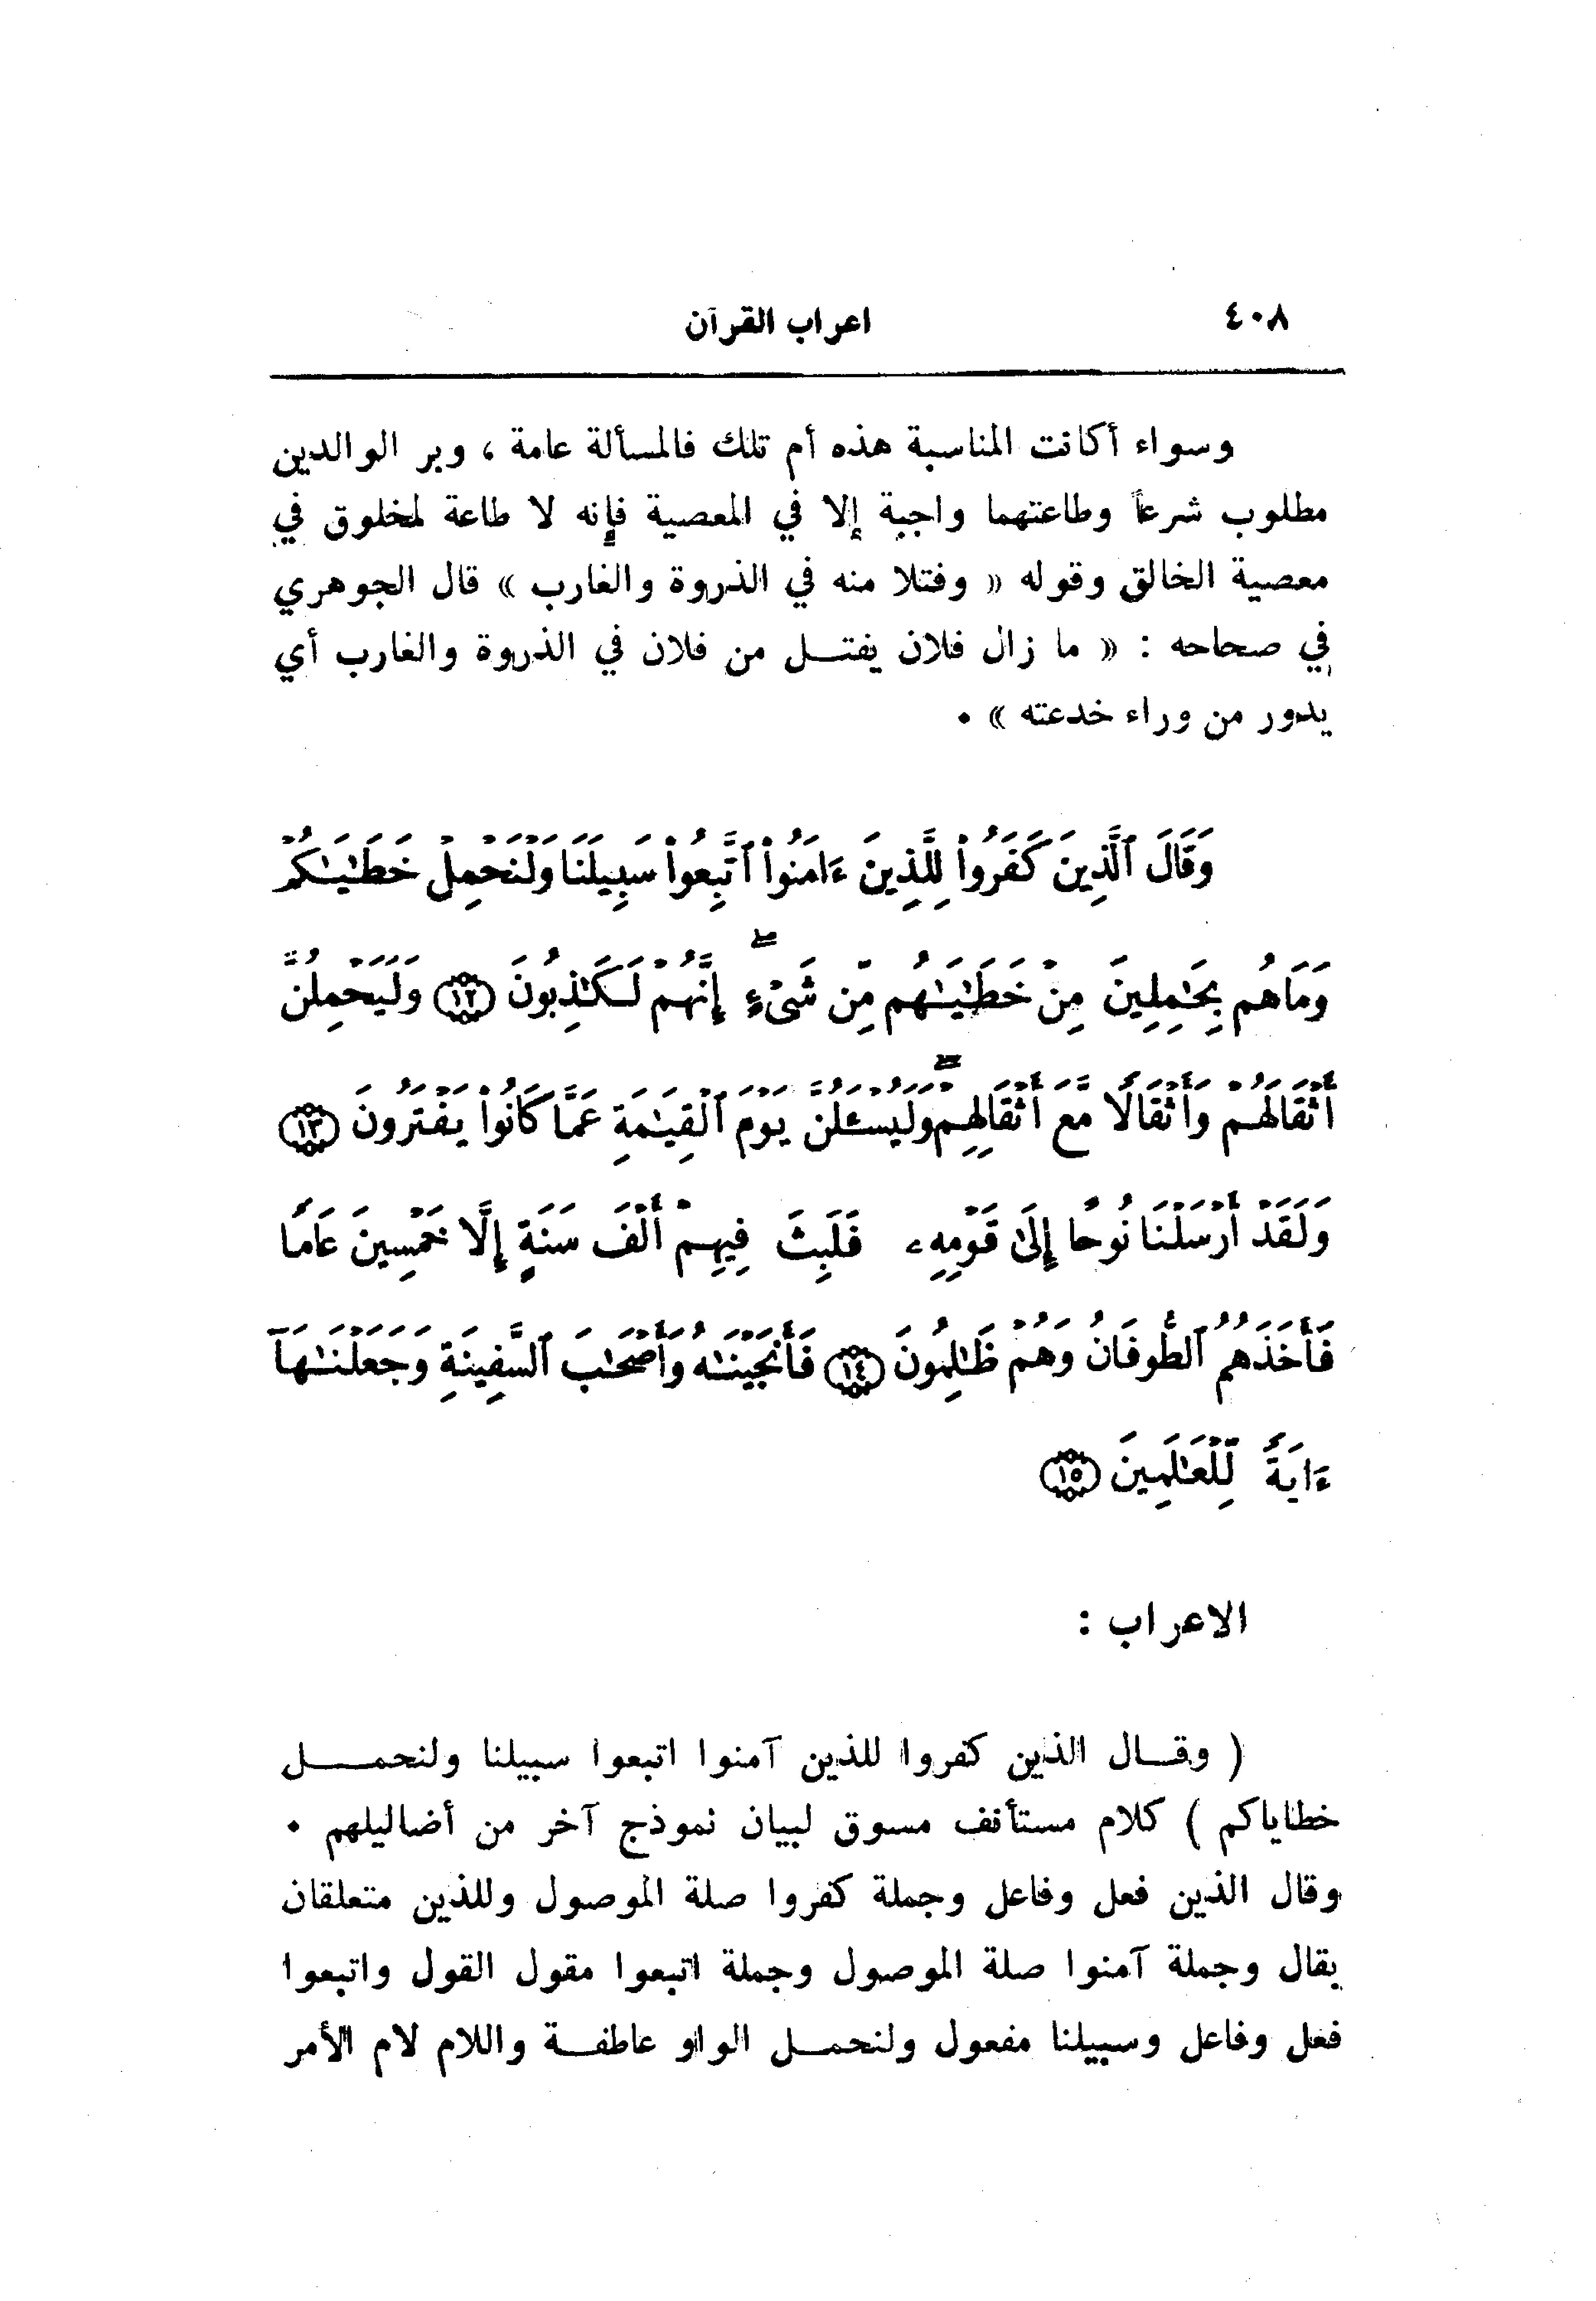 ٤٠٨
اعراب القرآن
وسواء أكانت المناسبة هذه أم تلك فالمسألة عامة ، وبر الوالدين
مطلوب شرعاً وطاعتهما واجبة إلا في المعصية فإنه لا طاعة لمخلوق في
معصية الخالق وقوله « وفتلا منه في الذروة والغارب » قال الجوهري
في صحاحه : « ما زال فلان يفتــل من فلان في الذروة والغارب أي
يدور من وراء خدعته » ٠
وَقَالَ ٱلَّذِينَ كَفَرُواْ لِلَّذِينَ ءَامَنُواْ ٱتَّبِعُواْ سَبِيلَنَا وَلْنَحْمِلْ خَطَٰيَٰكُمْ
وَمَا هُم بِحَٰمِلِينَ مِنْ خَطَٰيَٰهُم مِّن شَىْءٍ ۖ إِنَّهُمْ لَكَٰذِبُونَ ١٢ وَلَيَحْمِلُنَّ
أَثْقَالَهُمْ وَأَثْقَالًا مَّعَ أَثْقَالِهِمْ ۖ وَلَيُسْـَٔلُنَّ يَوْمَ ٱلْقِيَٰمَةِ عَمَّا كَانُواْ يَفْتَرُونَ ١٣
وَلَقَدْ أَرْسَلْنَا نُوحًا إِلَىٰ قَوْمِهِۦ فَلَبِثَ فِيهِمْ أَلْفَ سَنَةٍ إِلَّا خَمْسِينَ عَامًا
فَأَخَذَهُمُ ٱلطُّوفَانُ وَهُمْ ظَٰلِمُونَ ١٤ فَأَنجَيْنَٰهُ وَأَصْحَٰبَ ٱلسَّفِينَةِ وَجَعَلْنَٰهَآ
ءَايَةً لِّلْعَٰلَمِينَ ١٥
الاعراب :
( وقــال الذين كفروا للذين آمنوا اتبعوا سبيلنا ولنحمــل
خطاياكم ) كلام مستأنف مسوق لبيان نموذج آخر من أضاليلهم ٠
وقال الذين فعل وفاعل وجملة كفروا صلة الموصول وللذين متعلقان
بقال وجملة آمنوا صلة الموصول وجملة اتبعوا مقول القول واتبعوا
فعل وفاعل وسبيلنا مفعول ولنحمــل الواو عاطفــة واللام لام الأمر